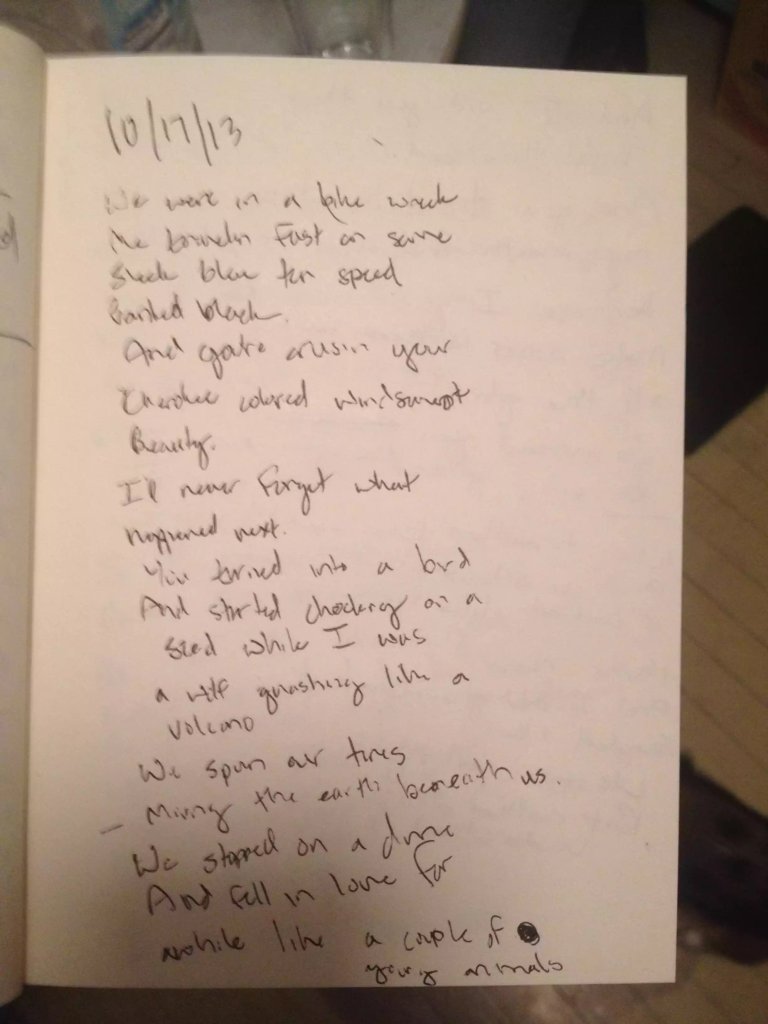 10/17/13
We were in a bike wreck
Me fast on some
Sleek blue ten speed
black.
And your
Cherokee colored windswept
Beauty.
I'll never forget what
happened next.
You turned into a bird
And started chocking on a
seed while I was
a gnashing like a
volcano
We spun our tires
the earth beneath us.
We stopped on a dime
And fell in love for
awhile like a couple of
young animals